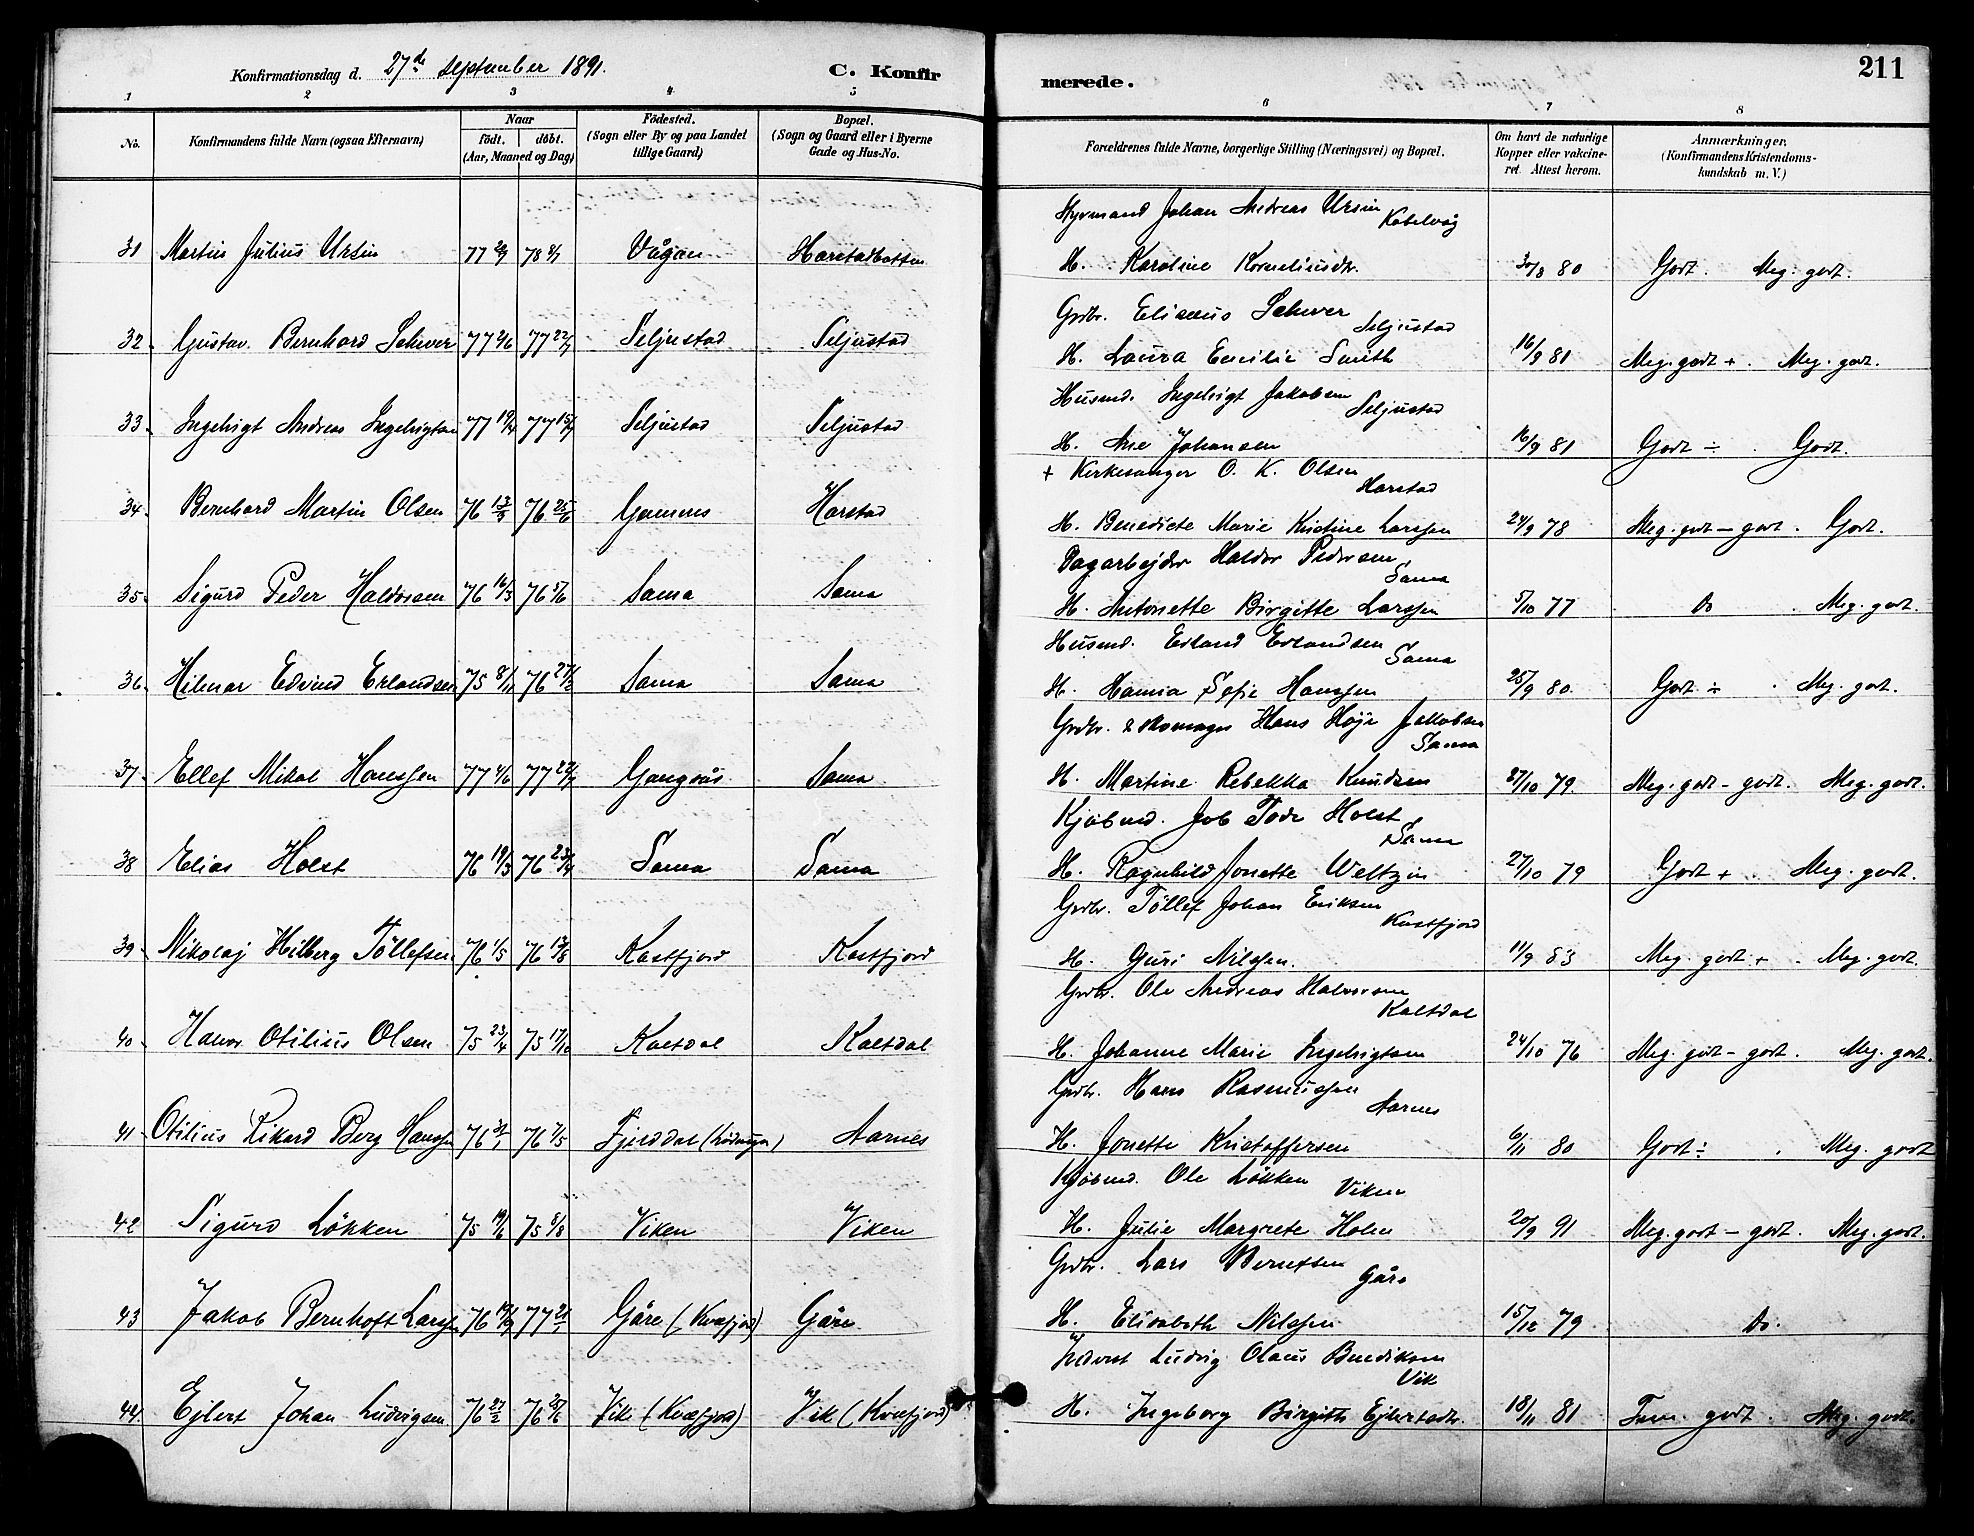 Konfirmationsdag d. 27de September 1891.
C. Konfir
merede.
211
1 2 3 4 5 6 7 8
No. Konfirmandens fulde Navn (ogsaa Efternavn) Naar Födt. döbt. (Aar, Maaned og Dag) Födested. (Sogn eller By og paa Landet tillige Gaard) Bopæl. (Sogn og Gaard eller i Byerne Gade og Hus-No. Forældrenes fulde Navne, borgerlige Stilling (Næringsvei) og Bopæl. Om havt de naturlige Kopper eller vakcineret. Attest herom. Anmærkninger. (Konfirmandens Kristendomskundskab m. V.)
Johan Andreas Ursin Kabelvåg
31 Martin Julius Ursin 77 78 Vågan Harstadbotten H. Karoline Korneliusdr. 30/8 80 Godt. Meg. godt.
Grdbr. Elisæus Schver Seljustad
32 Gustav Bernhard Schver 77 77 22/7 Seljestad Seljustad H. Laura Emilie Smith 16/9 81 Meg. godt + . Meg. godt.
Husmd. Ingebrigt Jakobsen Seljustad
33 Ingebrigt Andreas Ingebrigtsen 77 77 Seljustad Seljustad H. Ane Johansen 16/9 81 Godt ÷ . Godt.
+ Kirkesanger O. K. Olsen Harstad
34 Bernhard Martin Olsen 76 13/3 76 25/6 Gamnes Harstad H. Benedicte Marie Kristine Larssen 24/9 78 Meg. godt - godt . Godt.
Dagarbejder Haldor Pedersen Sama
35 Sigurd Peder Haldorsen 76 16/3 76 5/6 Sama Sama H. Antonette Birgitte Larssen 5/10 77 Do . Meg. godt.
Husmd. Erland Erlandsen Sama
36 Hilmar Edvind Erlandsen 75 8/11 76 27/2 Sama Sama H. Hansia Sofie Hanssen 25/9 80 Godt ÷ . Meg. godt.
Grdbr. & skomager Hans Höje Jakobsen Sama
37 Ellef Mikal Hanssen 77 4/6 77 22/7 Gangsås Sama H. Martine Rebekka Knudsen 27/10 79. Meg. godt - godt. Meg. godt.
Kjöbmd. Job Tode Holst Sama
38 Elias Holst 76 19/3 76 23/4 Sama Sama H. Ragnhild Jonette Weltzin 27/10 79 Godt + . Meg. godt.
Grdbr. Töllef Johan Eriksen Kastfjord
39 Nikolaj Hilberg Töllefsen 76 1/5 76 13/8 Kastfjord Kastfjord H. Guri Nilssen. 11/9 83 Meg. godt + . Meg. godt.
Grdbr. Ole Andreas Halvorsen Kaltdal
40 Halvor Otilius Olsen 75 23/4 75 17/10 Kaltdal Kaltdal H. Johanne Marie Ingebrigtsen 24/10 76 Meg. godt - godt . Meg. godt.
Grdbr. Hans Rasmussen Aarnes
41 Otilius Rikard Berg Hanssen 76 31/1 76 7/5 Fjelddal (Lödingen) Aarnes H. Jonette Kristoffersen 6/11 80 Godt ÷ . Meg. godt
Kjöbmd. Ole Lökken Viken
42 Sigurd Lökken 75 19/6 75 8/8 Viken Viken H. Julie Margrete Holm 20/9 91 Meg. godt - godt . Meg. godt.
Grdbr. Lars Berntsen Gåre
43 Jakob Bernhoft Larssen 76 77 21/1 Gåre (Kvæfjord) Gåre H. Elisabeth Nilssen 15/12 79 Do.
Inderst Ludvig Olaus Bendiksen Vik
44 Ejlert Johan Ludvigsen 76 27/2 76 28/6 Vik (Kvæfjord) Vik (Kvæfjord) H. Ingeborg Birgitte Ejlertsdr. 18/11 81 Tem. godt . Meg. godt.